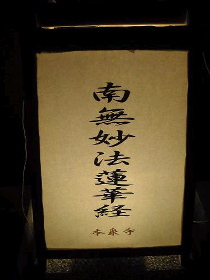 南無妙法蓮華経
本泉寺